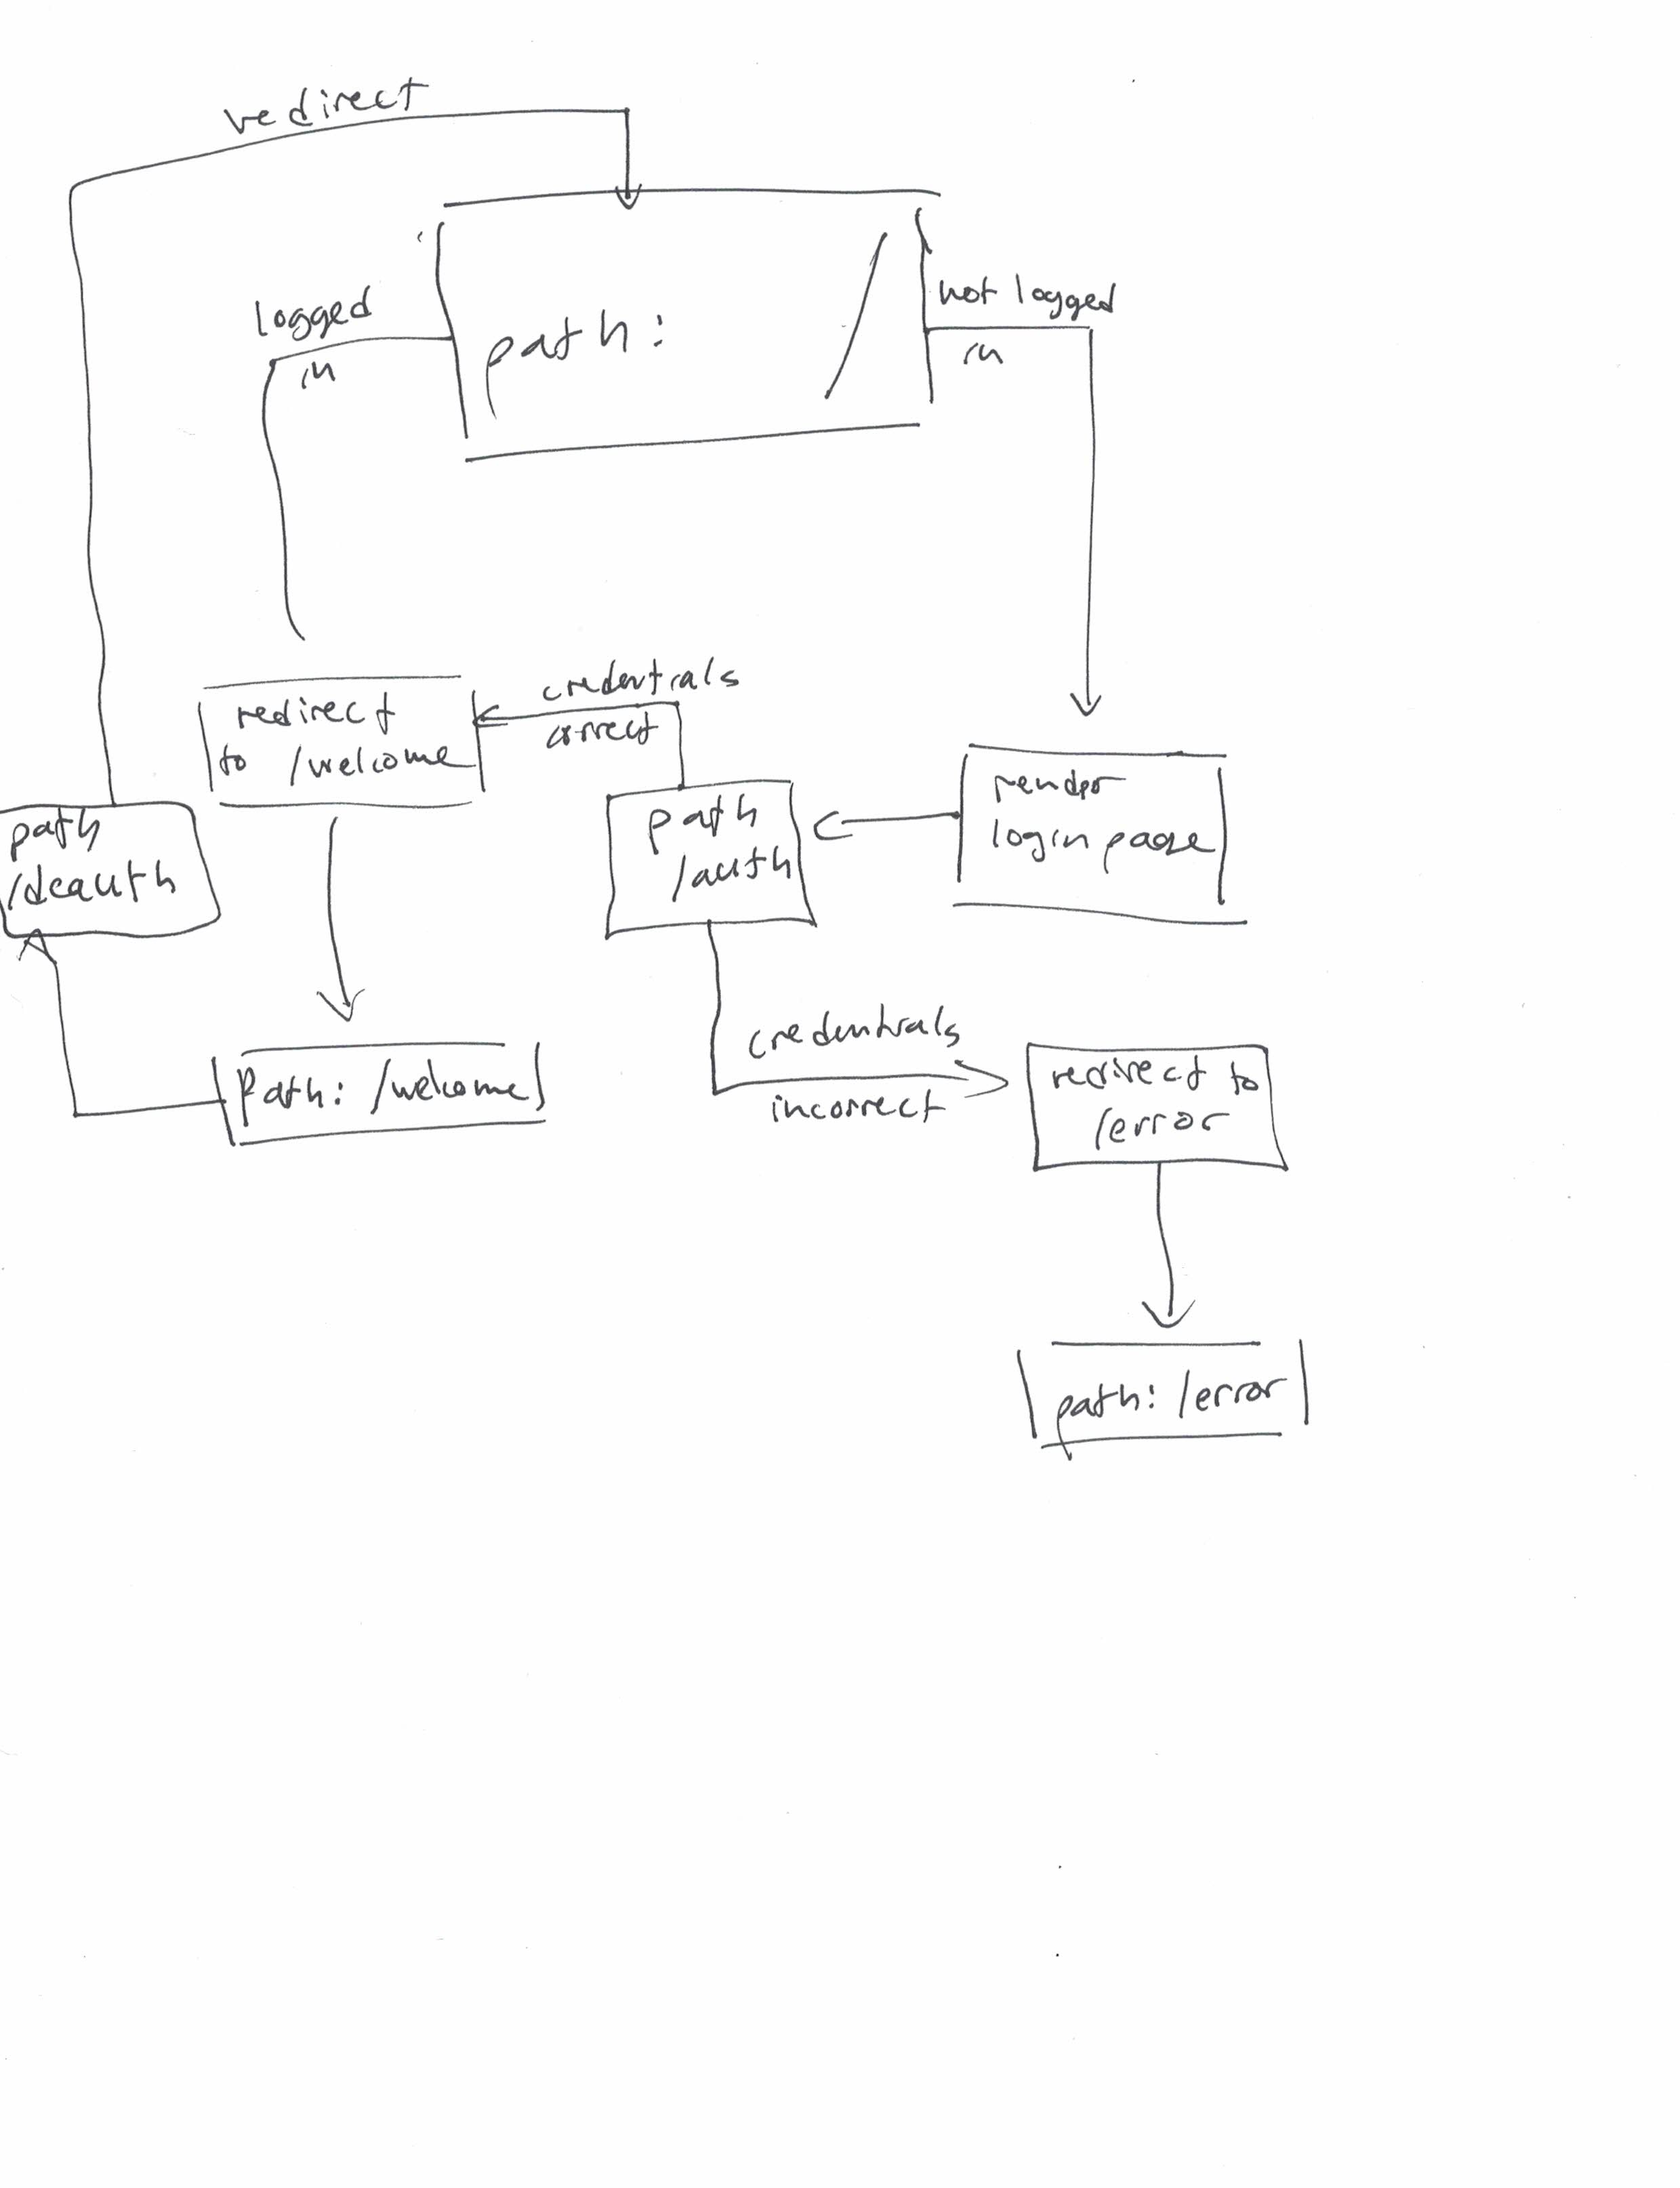 redirect
path: /
logged
in
not logged
in
redirect
to /welcome
credentials
correct
path
/auth
render
login page
path
/deauth
path: /welcome
credentials
incorrect
redirect to
/error
path: /error